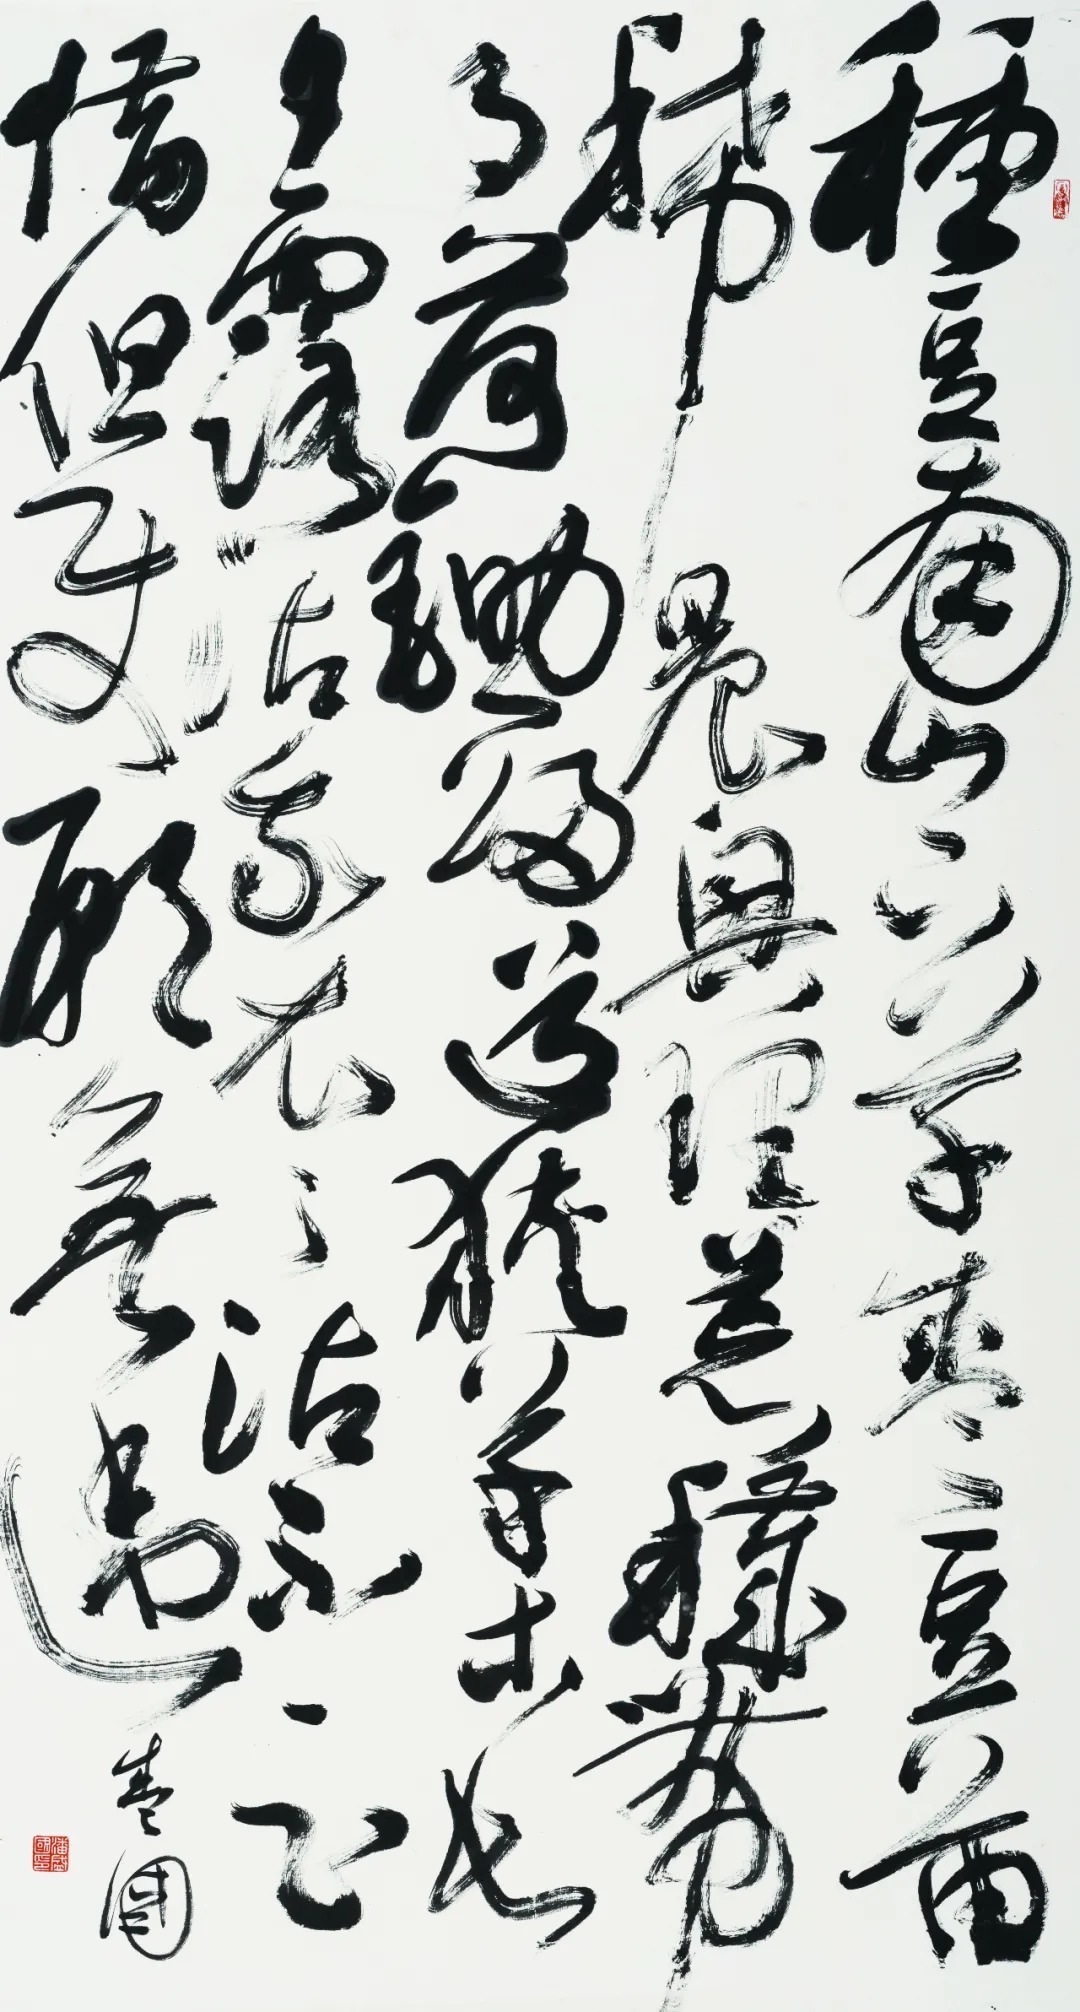 種豆南山下草盛豆苗
稀晨興理荒穢帶
月荷鋤歸道狹草木長
夕露沾我衣〻沾不足
惜但使願無違
盛國
潘盛國印